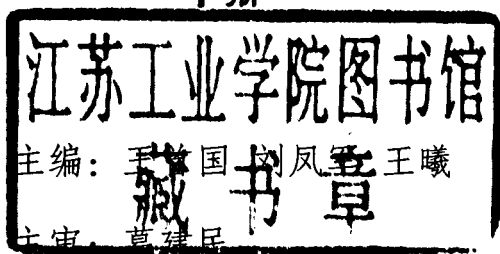 江苏工业学院图书馆
主编：王 国 刘凤 王曦
藏书章
主审：慕建民